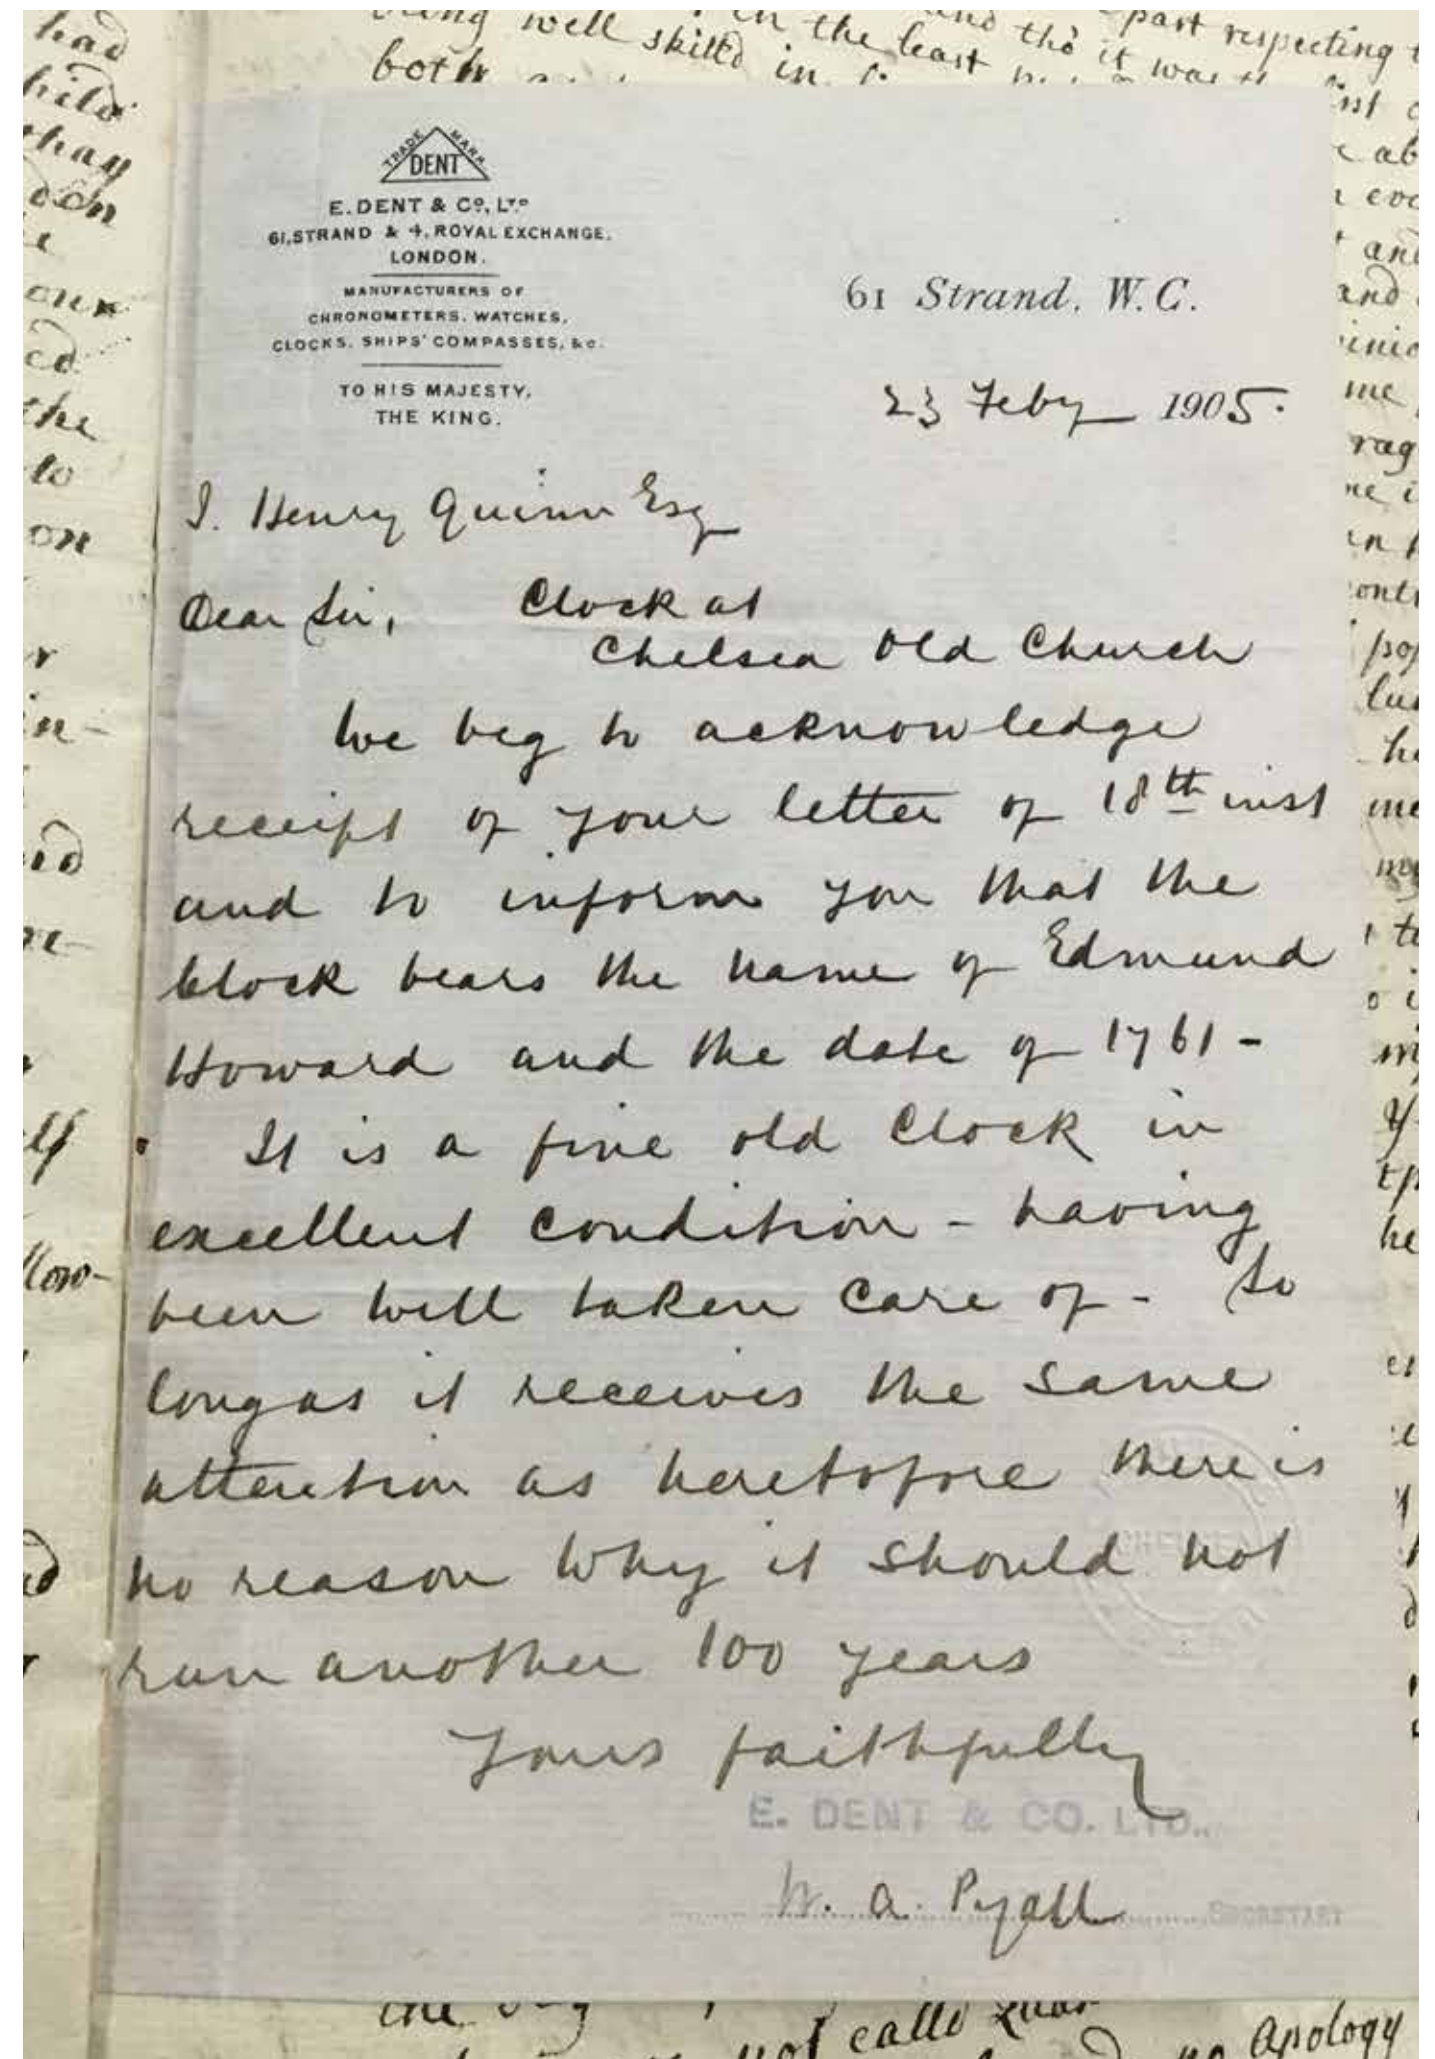 being well skilld in the least and tho it was part respecting
both
TRADE MARK
DENT
E. DENT & Co., LTD
61, STRAND & 4, ROYAL EXCHANGE,
LONDON.
MANUFACTURERS OF
CHRONOMETERS, WATCHES,
CLOCKS, SHIPS' COMPASSES, &c.
TO HIS MAJESTY,
THE KING.
61 Strand, W.C.
23 Feby 1905.
J. Henry Quinn Esq
Dear Sir,
Clock at
Chelsea Old Church
We beg to acknowledge
receipt of your letter of 18th inst
and to inform you that the
Clock bears the name of Edmund
Howard and the date of 1761 -
It is a fine old Clock in
excellent condition - having
been well taken care of - So
long as it receives the same
attention as heretofore there is
no reason why it should not
run another 100 years
Yours faithfully
E. DENT & CO. LTD.,
W. A. Pyall
SECRETARY
not calld
Apology